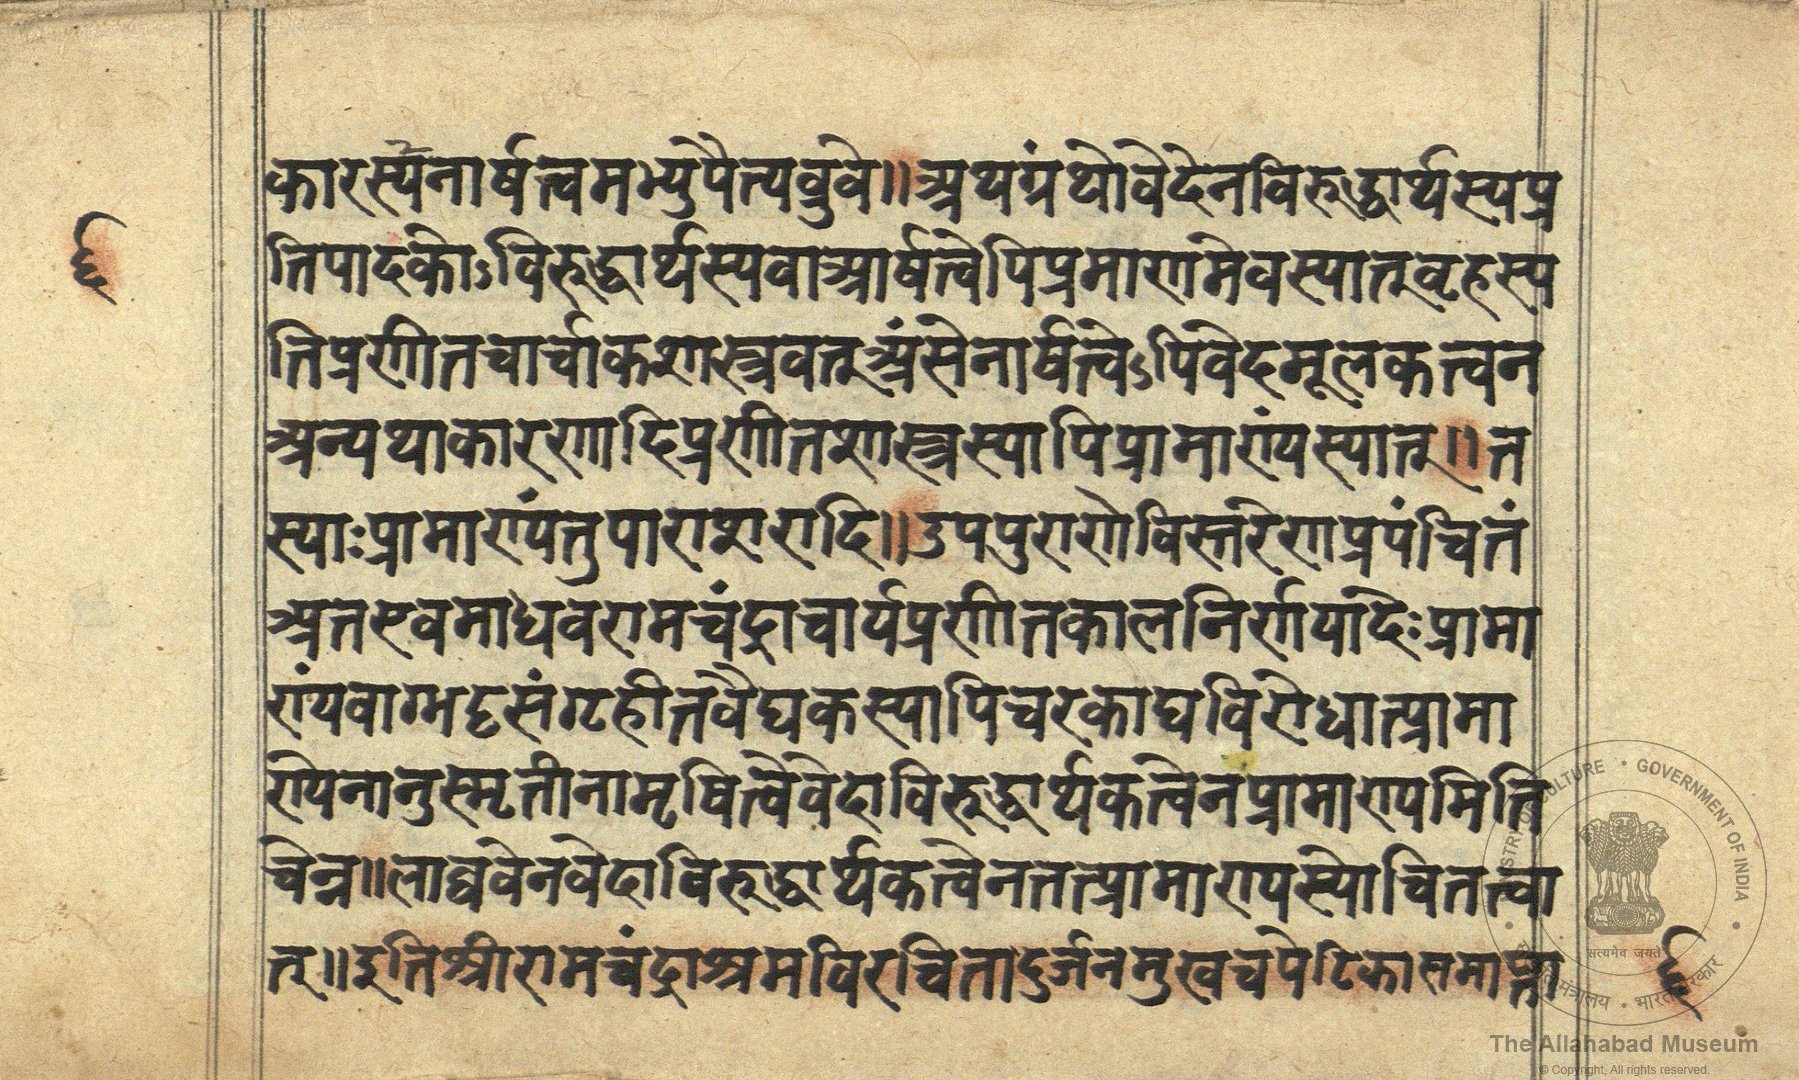 कारस्यैनार्षत्वमभ्युपैत्यवुवे॥अथग्रंथोवेदेनविरुद्धार्थस्यप्र
६
तिपादकोऽविरुद्धार्थस्यवाआर्षत्वेपिप्रमाणमेवस्यात्तूवृहस्प
तिप्रणीतचार्वाकशास्त्रवत्अंसेनार्षत्वेऽपिवेदमूलकत्वन
अन्यथाकारणादिप्रणीतशास्त्रस्यापिप्रामाण्यंस्यात्॥त
स्याःप्रामाण्यंतुपाराशरादि॥उपपुराणेविस्तरेणप्रपंचितं
अतएवमाधवरामचंद्राचार्यप्रणीतकालनिर्णयादेःप्रामा
ण्यंवाग्भटसंगृहीतवैद्यकस्यापिचरकाद्यविरोधात्प्रामा
ण्येनानुस्मृतीनामृषित्वेवेदाविरुद्धार्थकत्वेनप्रामाण्यमिति
चेन्न॥लाघवेनवेदाविरुद्धार्थकत्वेनतत्प्रामाण्यस्योचितत्वा
त्॥इतिश्रीरामचंद्राश्रमविरचितादुर्जनमुखचपेटिकासमाप्ता
६
MINISTRY OF CULTURE • GOVERNMENT OF INDIA
सत्यमेव जयते
संस्कृति मंत्रालय • भारत सरकार
The Allahabad Museum
© Copyright, All rights reserved.